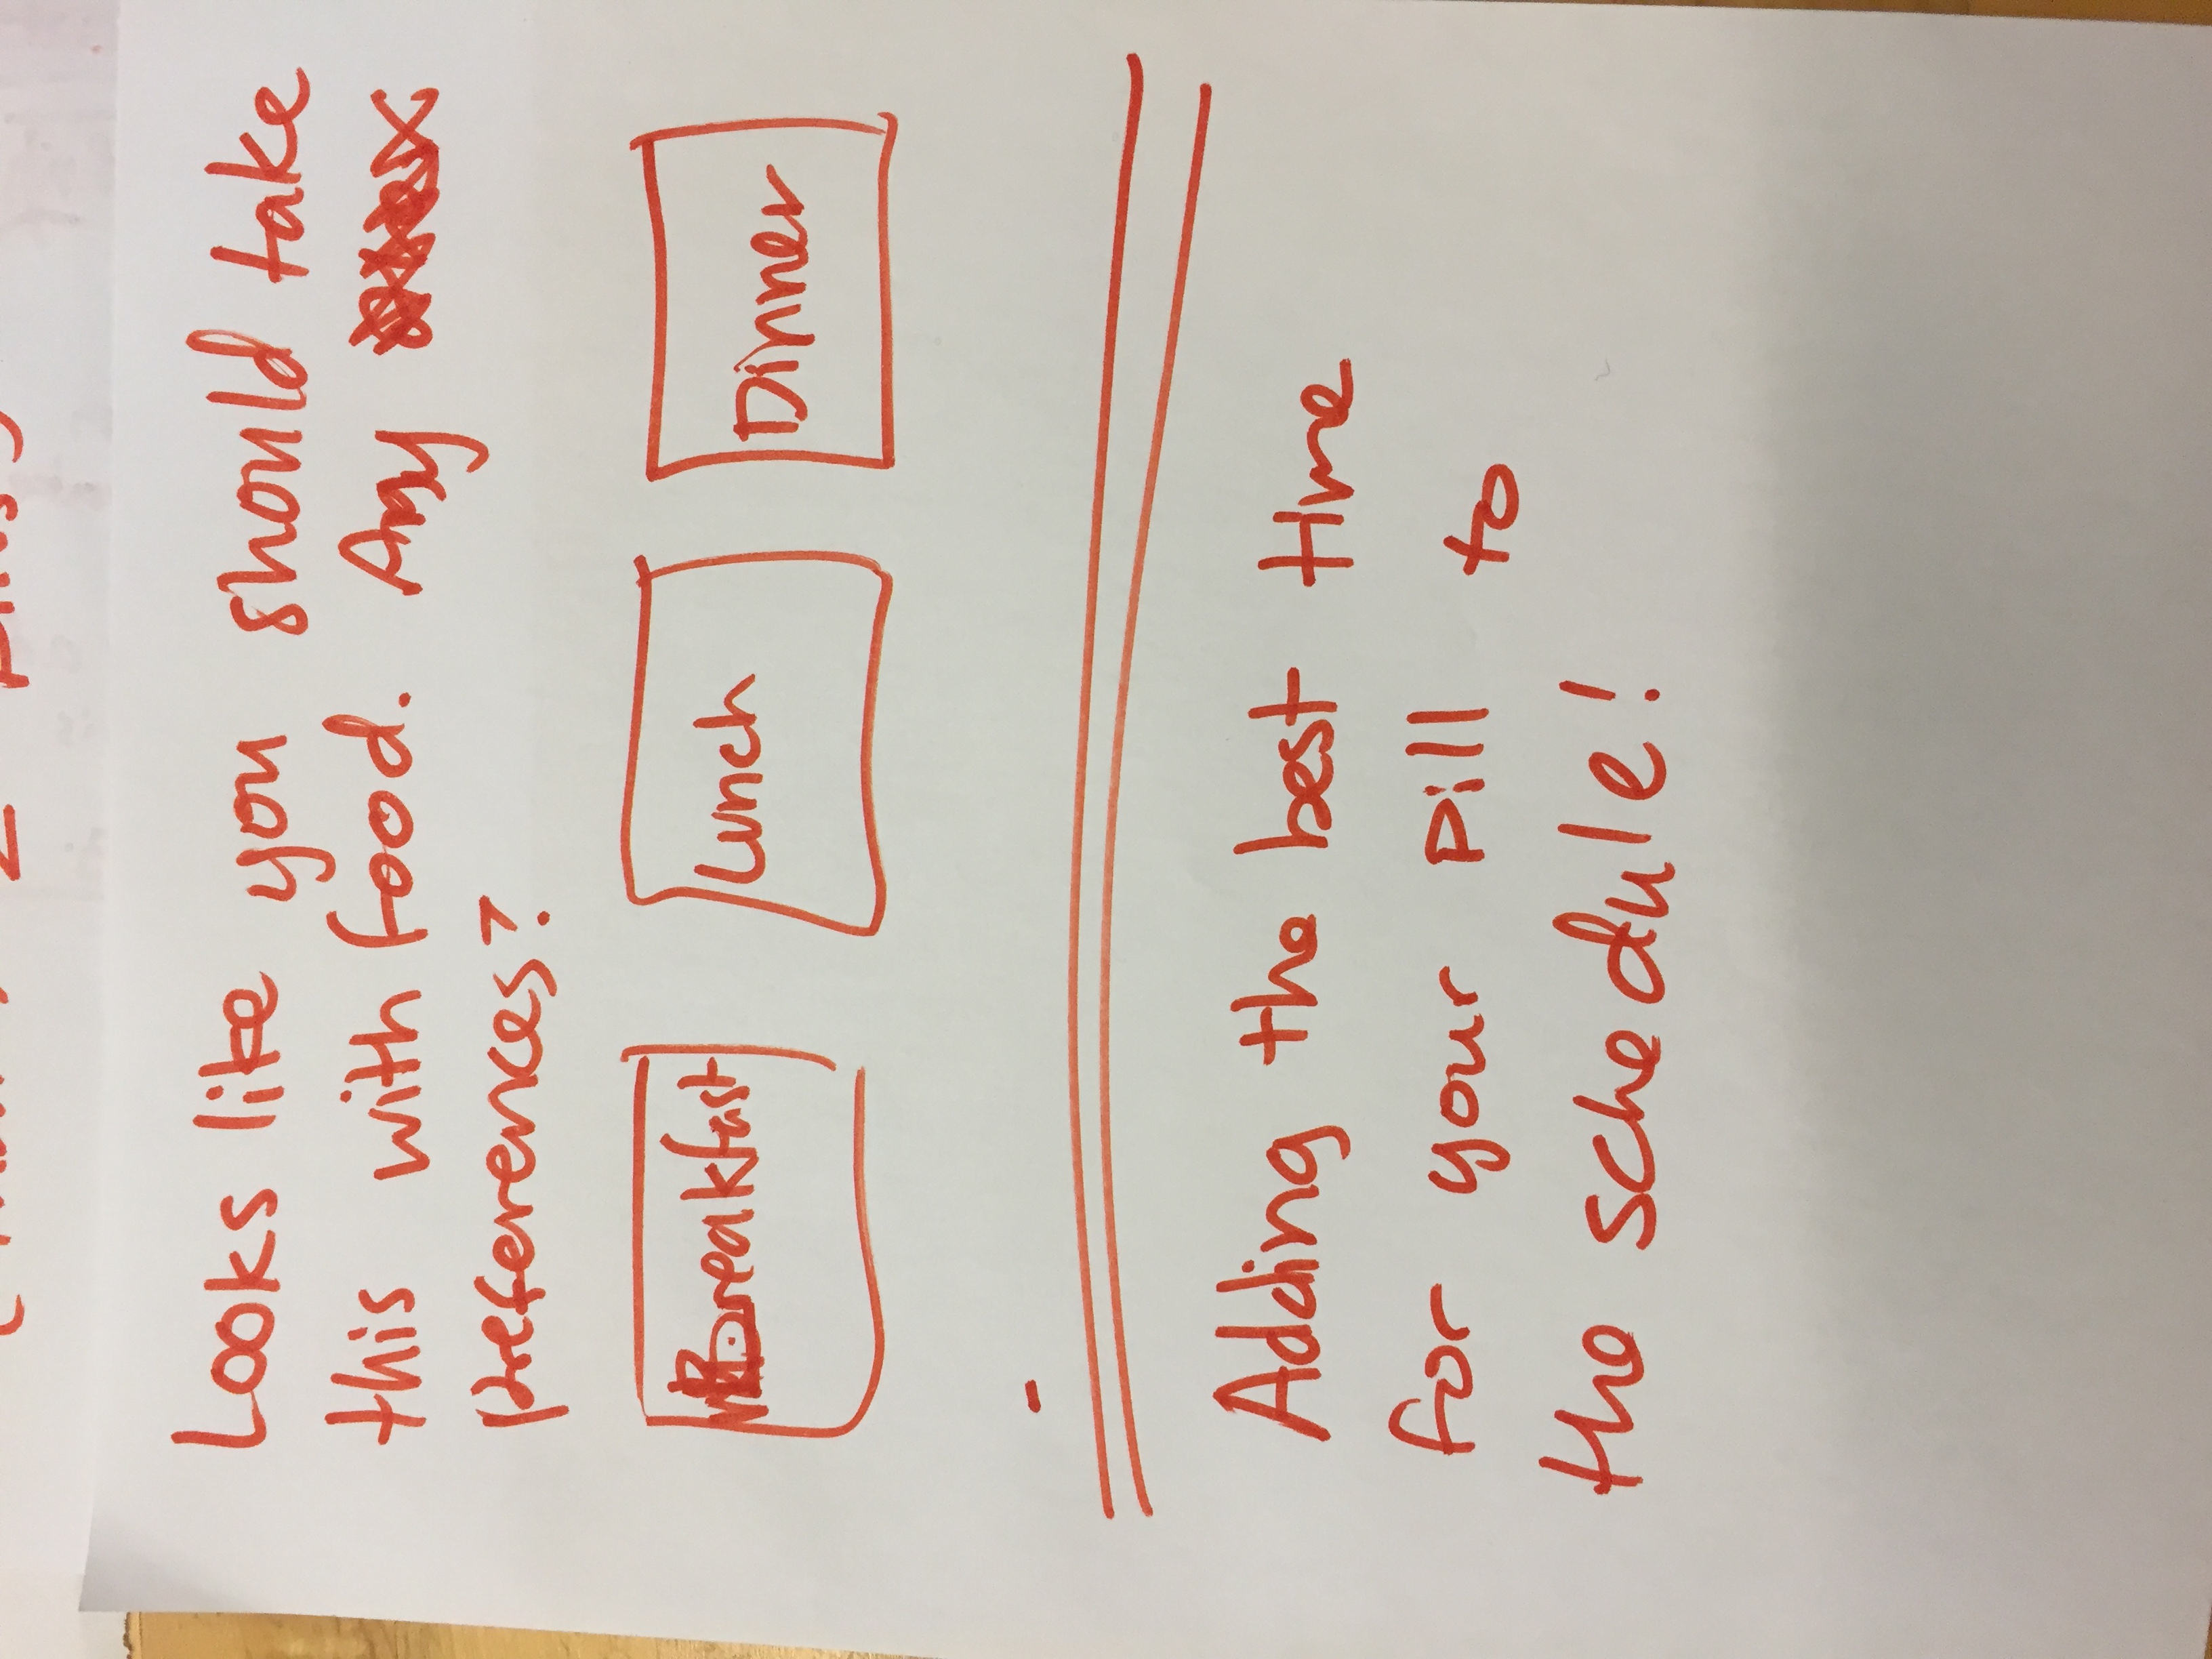 2
Looks like you should take
this with food. Any
preferences?
Breakfast Lunch Dinner
Adding the best time
for your pill to
the schedule!